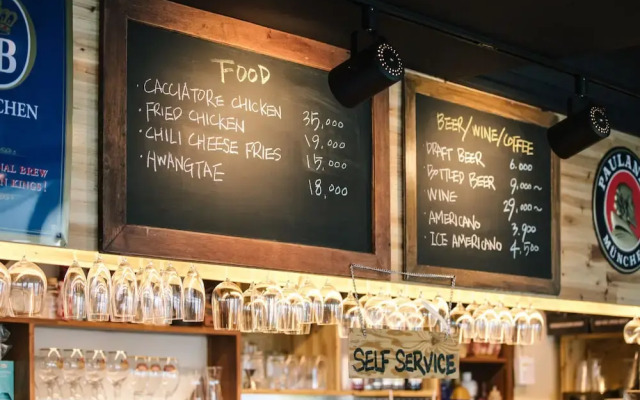 B
CHEN
AL BREW
KINGS!
FOOD
· CACCIATORE CHICKEN 35,000
· FRIED CHICKEN 19,000
· CHILI CHEESE FRIES 15,000
· HWANGTAE 18,000
BEER/WINE/COFFEE
· DRAFT BEER 6.000
· BOTTLED BEER 9,000~
· WINE 29,000~
· AMERICANO 3,900
· ICE AMERICANO 4,500
PAULAN
MÜNCHE
SELF SERVICE